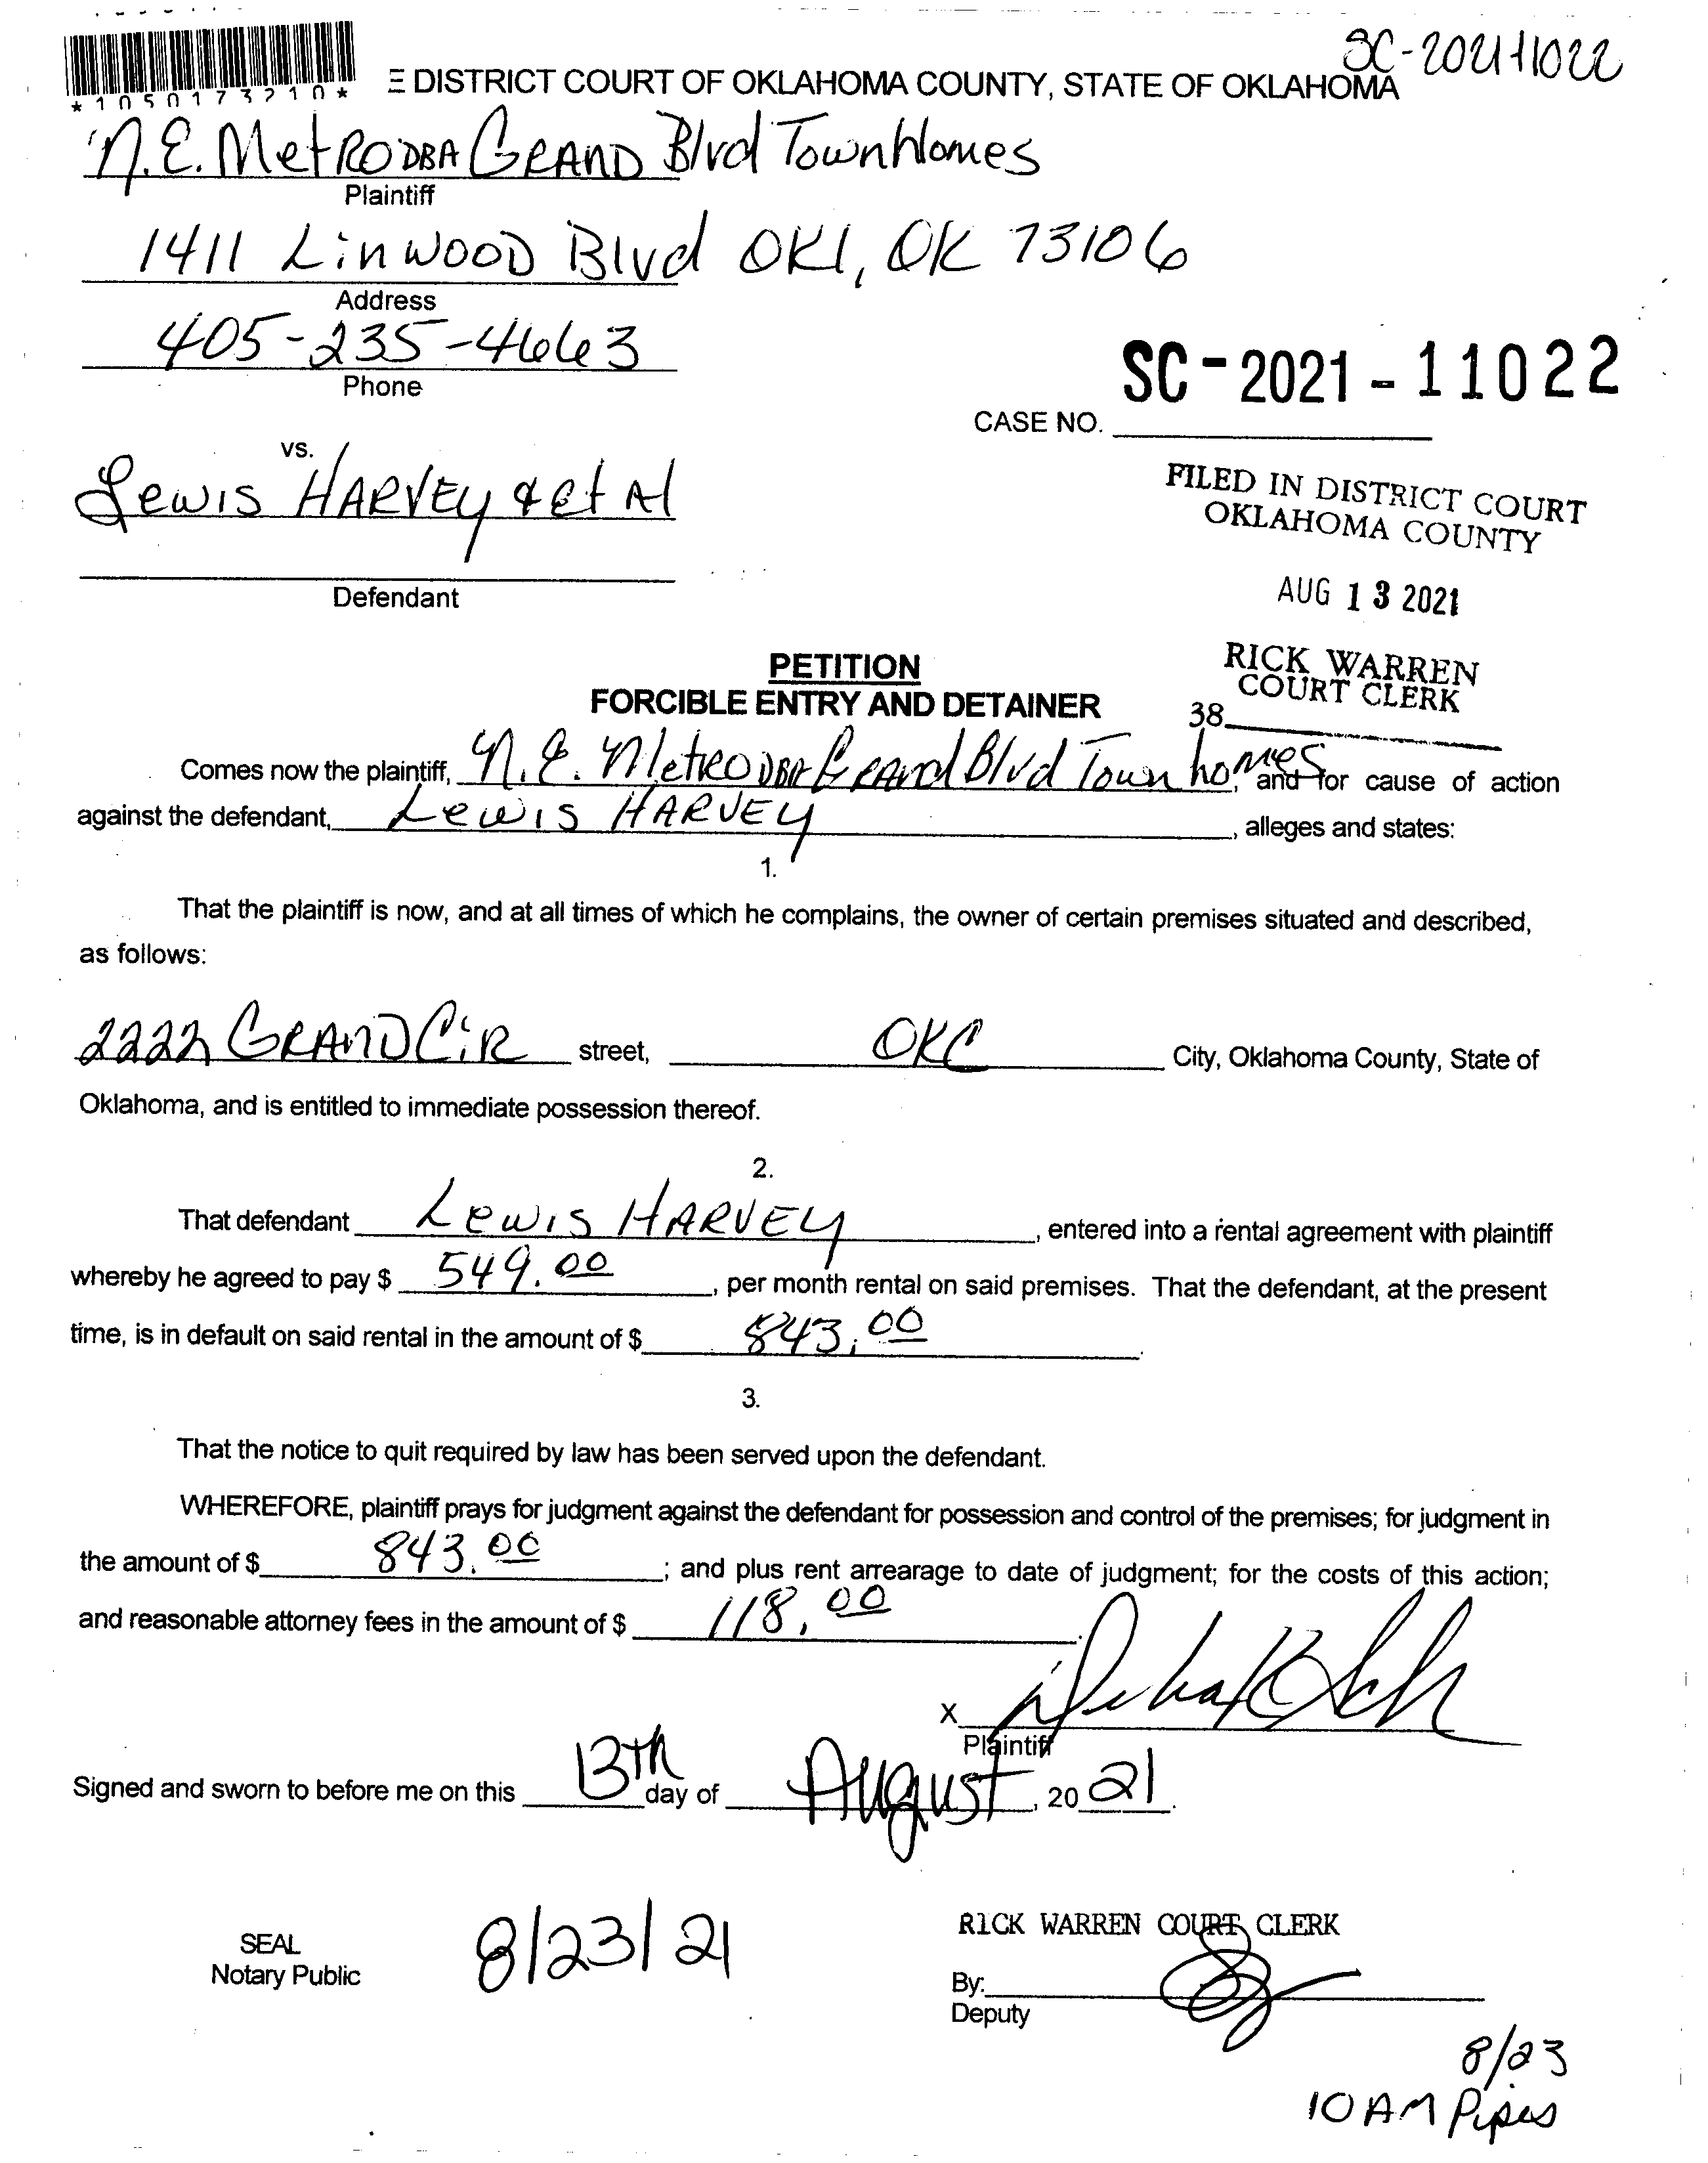 SC-2021-11022
*1050173210*
E DISTRICT COURT OF OKLAHOMA COUNTY, STATE OF OKLAHOMA
N.E. Metro DBA Grand Blvd TownHomes
Plaintiff
1411 Linwood Blvd OKC, OK 73106
Address
405-235-4663
Phone
SC-2021-11022
CASE NO.
vs.
Lewis HARVEY & et Al
Defendant
FILED IN DISTRICT COURT
OKLAHOMA COUNTY
AUG 13 2021
RICK WARREN
COURT CLERK
38
PETITION
FORCIBLE ENTRY AND DETAINER
Comes now the plaintiff, N.E. Metro DBA Grand Blvd Town homes, and for cause of action
against the defendant, Lewis HARVEY, alleges and states:
1.
That the plaintiff is now, and at all times of which he complains, the owner of certain premises situated and described,
as follows:
2222 GRAND CiR street, OKC City, Oklahoma County, State of
Oklahoma, and is entitled to immediate possession thereof.
2.
That defendant Lewis HARVEY, entered into a rental agreement with plaintiff
whereby he agreed to pay $ 549.00, per month rental on said premises. That the defendant, at the present
time, is in default on said rental in the amount of $ 843.00.
3.
That the notice to quit required by law has been served upon the defendant.
WHEREFORE, plaintiff prays for judgment against the defendant for possession and control of the premises; for judgment in
the amount of $ 843.00; and plus rent arrearage to date of judgment; for the costs of this action;
and reasonable attorney fees in the amount of $ 118.00.
X
Plaintiff
Signed and sworn to before me on this 13th day of August, 2021.
SEAL
Notary Public
8/23/21
RICK WARREN COURT CLERK
By:
Deputy
8/23
10 AM Pipes